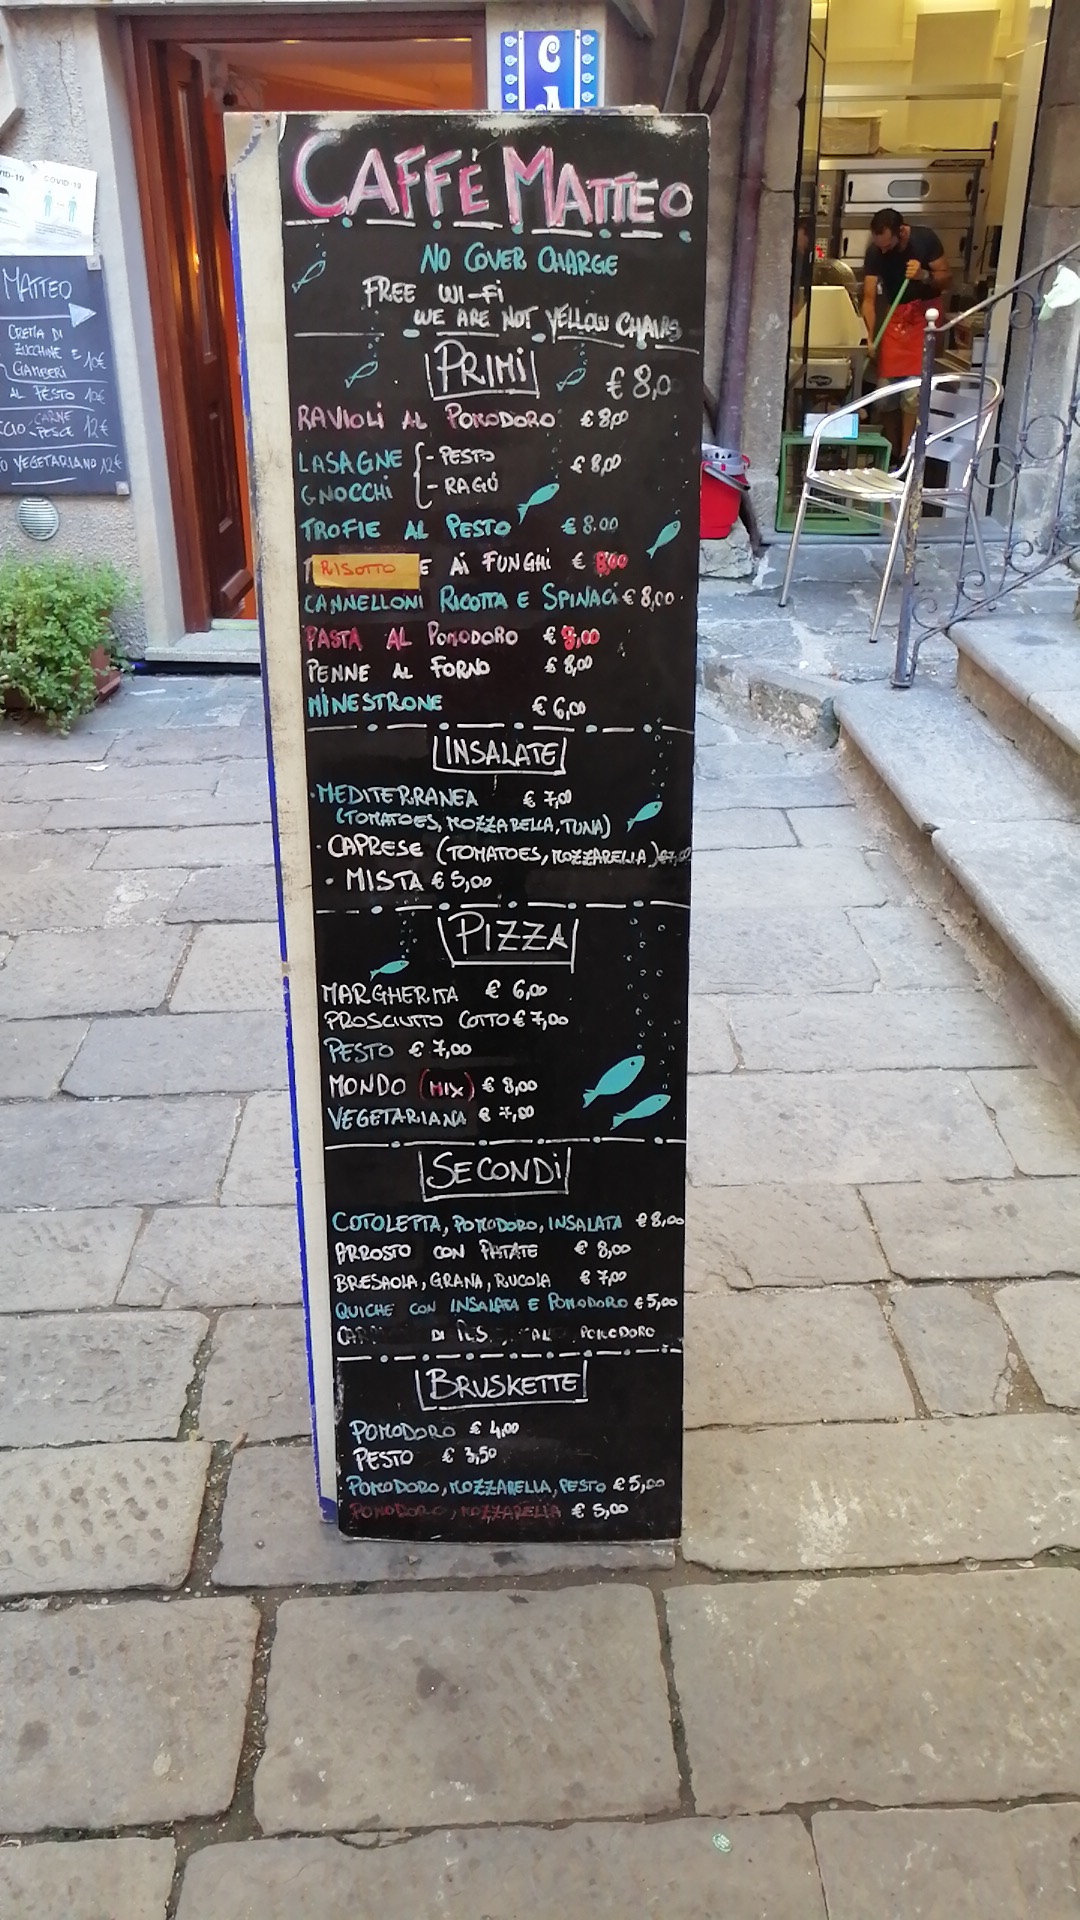 C
A
COVID-19
MATTEO
CREMA DI
ZUCCHINE E
GAMBERI 10€
AL PESTO 10€
CARNE
PESCE 12€
VEGETARIANO 12€
CAFFÈ MATTEO
NO COVER CHARGE
FREE WI-FI
WE ARE NOT YELLOW CHAIRS
PRIMI € 8,0
RAVIOLI AL POMODORO € 8,00
LASAGNE - PESTO € 8,00
GNOCCHI - RAGÚ
TROFIE AL PESTO € 8.00
RISOTTO E AI FUNGHI € 8,00
CANNELLONI RICOTTA E SPINACI € 8,00.
PASTA AL POMODORO € 8,00
PENNE AL FORNO € 8,00
MINESTRONE € 6,00
INSALATE
·MEDITERRANEA € 7,00
(TOMATOES, MOZZARELLA, TUNA)
· CAPRESE (TOMATOES, MOZZARELLA) €7,00
· MISTA € 5,00
PIZZA
MARGHERITA € 6,00
PROSCIUTTO COTTO € 7,00
PESTO € 7,00
MONDO (MIX) € 8,00
VEGETARIANA € 7,00
SECONDI
COTOLETTA, POMODORO, INSALATA € 8,00
ARROSTO CON PATATE € 8,00
BRESAOLA, GRANA, RUCOLA € 7,00
QUICHE CON INSALATA E POMODORO € 5,00
DI AL POMODORO
BRUSKETTE
POMODORO € 4,00
PESTO € 3,50
POMODORO, MOZZARELLA, PESTO € 5,00
POMODORO, MOZZARELLA € 5,00